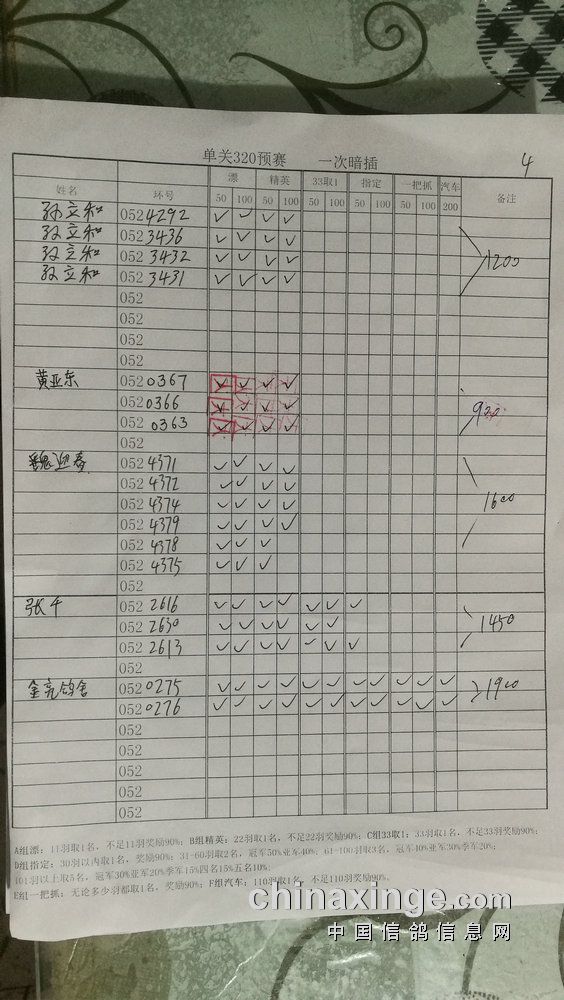 单关320预赛 一次暗插 4
姓名 环号 漂 精英 33取1 指定 一把抓 汽车 备注
50 100 50 100 50 100 50 100 50 100 200
孙立和 052 4292 ✓ ✓ ✓ ✓
孙立和 052 3436 ✓ ✓ ✓ ✓
孙立和 052 3432 ✓ ✓ ✓ ✓ 1200
孙立和 052 3431 ✓ ✓ ✓ ✓
052
052
052
052
黄亚东 052 0367 ✓ ✓ ✓ ✓
052 0366 ✓ ✓ ✓ ✓ 900
052 0363 ✓ ✓ ✓ ✓
052
魏迎春 052 4371 ✓ ✓ ✓ ✓
052 4372 ✓ ✓ ✓ ✓
052 4374 ✓ ✓ ✓ ✓ 1600
052 4379 ✓ ✓ ✓ ✓
052 4378 ✓ ✓ ✓
052 4375 ✓ ✓ ✓
052
张千 052 2616 ✓ ✓ ✓ ✓ ✓ ✓ ✓
052 2630 ✓ ✓ ✓ ✓ ✓ ✓ 1450
052 2613 ✓ ✓ ✓ ✓ ✓ ✓ ✓
052
金亮鸽舍 052 0275 ✓ ✓ ✓ ✓ ✓ ✓ ✓ ✓ ✓ ✓ ✓ 1900
052 0276 ✓ ✓ ✓ ✓ ✓ ✓ ✓ ✓ ✓ ✓ ✓
052
052
052
052
052
A组漂：11羽取1名，不足11羽奖励90%；B组精英：22羽取1名，不足22羽奖励90%；C组33取1：33羽取1名，不足33羽奖励90%；
D组指定：30羽以内取1名，奖励90%；31-60羽取2名，冠军50%亚军40%；61-100羽取3名，冠军40%亚军30%季军20%；
101羽以上取5名，冠军30%亚军20%季军15%四名15%五名10%.
E组一把抓：无论多少羽都取1名，奖励90%；F组汽车：110羽取1名，不足110羽奖励90%.
chinaxinge.com
中国信鸽信息网